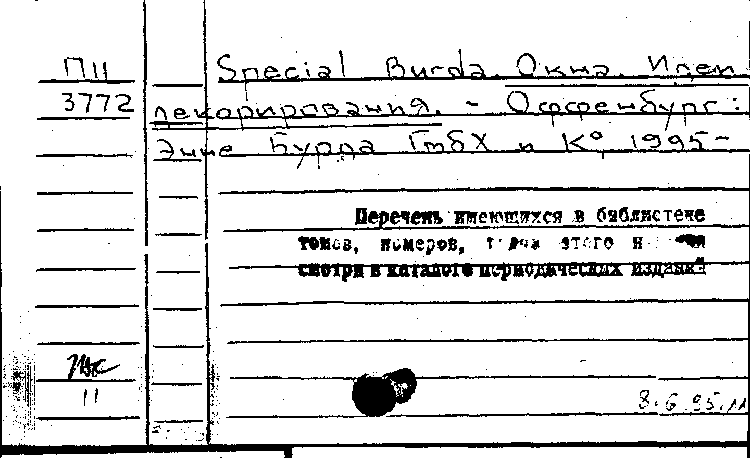 П11 Special Burda. Окна. Идеи
3772 декорирования. - Оффенбург:
Энне Бурда ГмбХ и К°, 1995-
Перечень имеющихся в библиотеке
томов, номеров, этого
смотри в каталоге периодических изданий
11 8.6.95